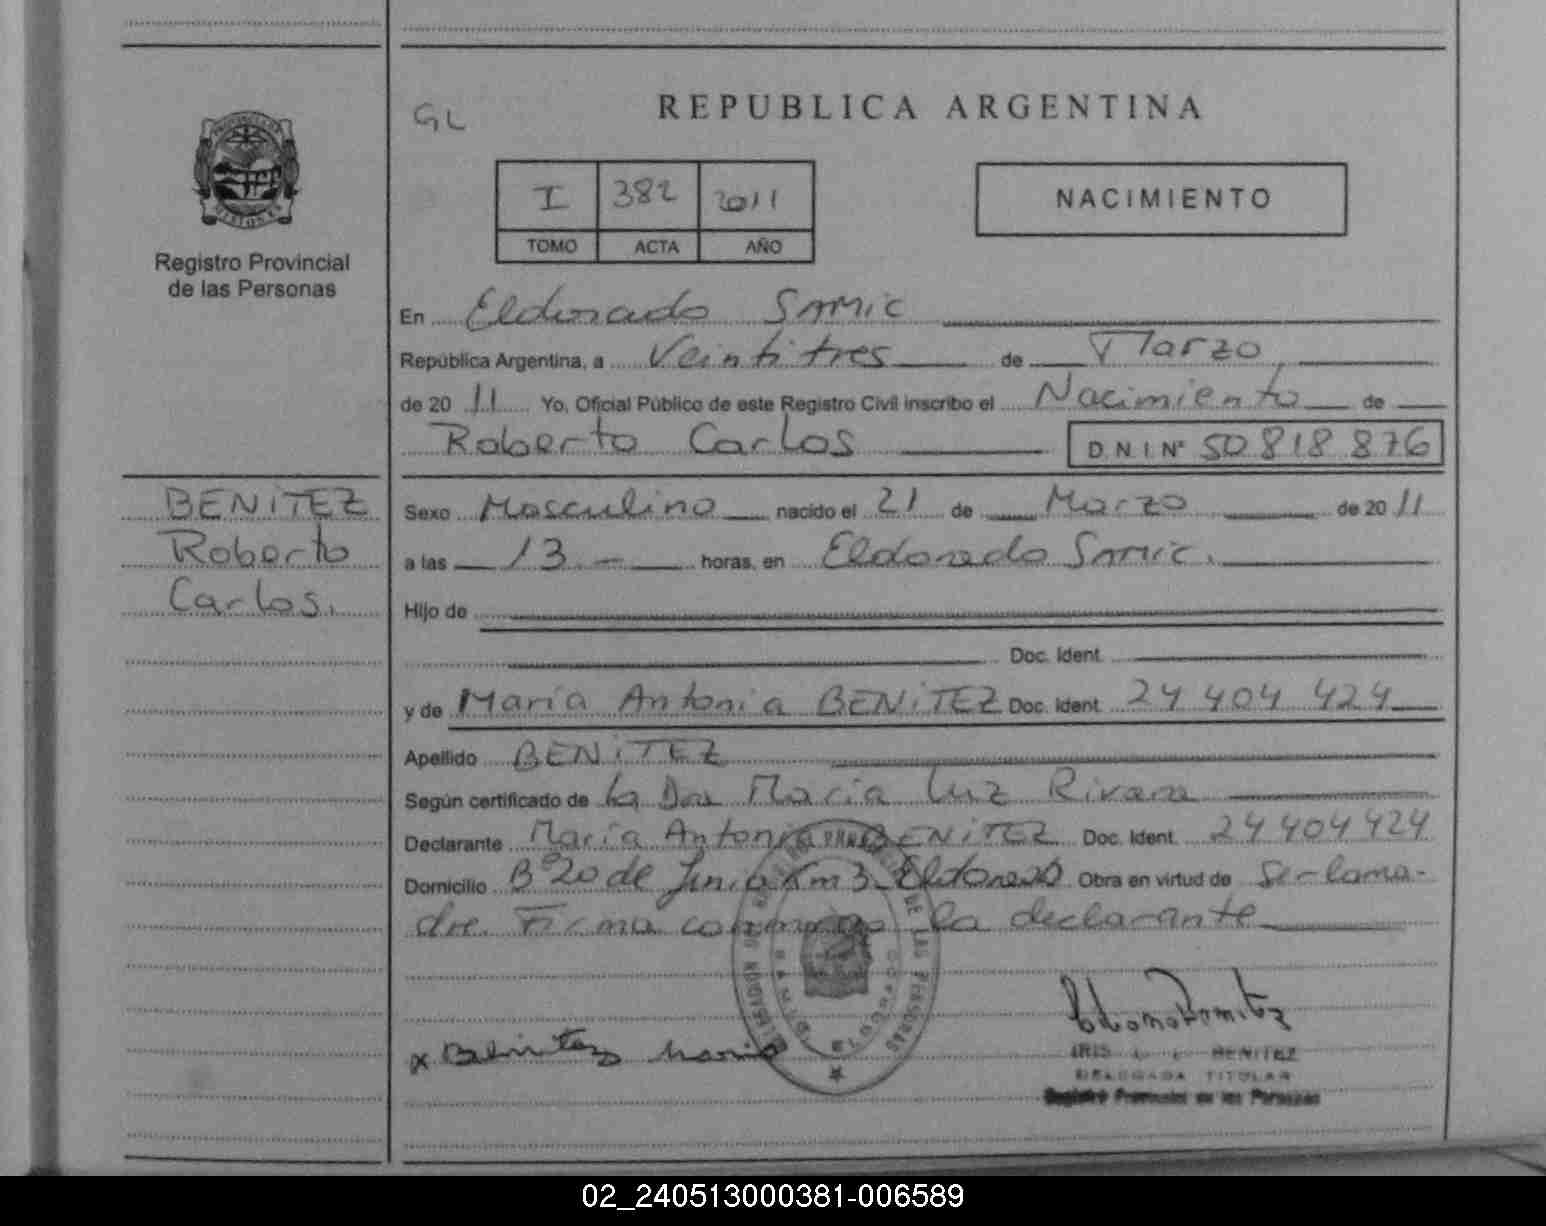 GL
REPUBLICA ARGENTINA
I 382 2011
TOMO ACTA AÑO
NACIMIENTO
Registro Provincial
de las Personas
En Eldorado SAMIC
República Argentina, a Veintitres de Marzo
de 20 11 Yo, Oficial Público de este Registro Civil inscribo el Nacimiento de
Roberto Carlos D.N.I.Nº 50 818 876
BENITEZ
Roberto
Carlos.
Sexo Masculino nacido el 21 de Marzo de 20 11
a las 13.- horas, en Eldorado SAMIC.
Hijo de
Doc. Ident.
y de María Antonia BENITEZ Doc. Ident. 24 404 424
Apellido BENITEZ
Según certificado de la Dra María Luz Rivara
Declarante María Antonia BENITEZ Doc. Ident. 24 404 424
Domicilio Bº 20 de Junio Km 3 Eldorado Obra en virtud de Ser la ma-
dre. Firma conmigo la declarante
x Benitez Maria
IRIS BENITEZ
DELEGADA TITULAR
Registro Provincial de las Personas
DE LAS PERSONAS
ELDORADO
02_240513000381-006589